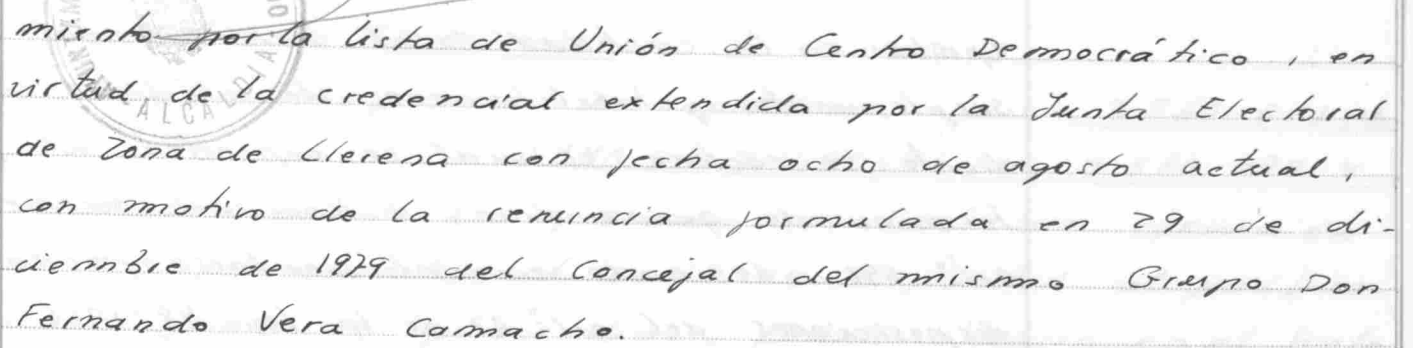 miento por la lista de Unión de Centro Democrático, en
virtud de la credencial extendida por la Junta Electoral
de Zona de Llerena con fecha ocho de agosto actual,
con motivo de la renuncia formulada en 29 de di-
ciembre de 1979 del Concejal del mismo Grupo Don
Fernando Vera Camacho.
ALCALDIA